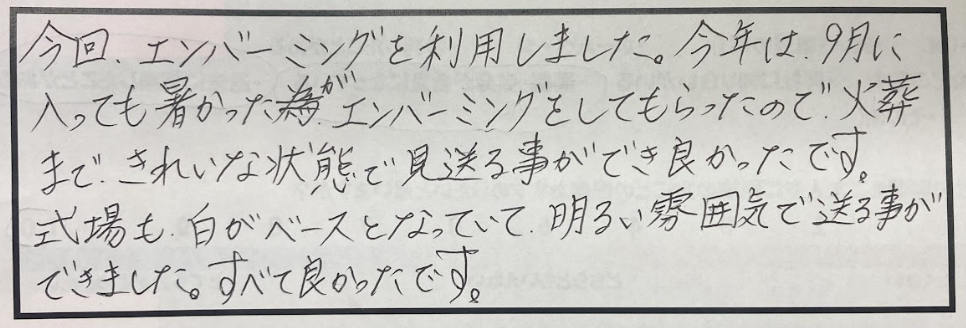 今回、エンバーミングを利用しました。今年は、9月に
入っても暑かった為が、エンバーミングをしてもらったので、火葬
まで、きれいな状態で見送る事ができ良かったです。
式場も、白がベースとなっていて、明るい雰囲気で送る事が
できました。すべて良かったです。